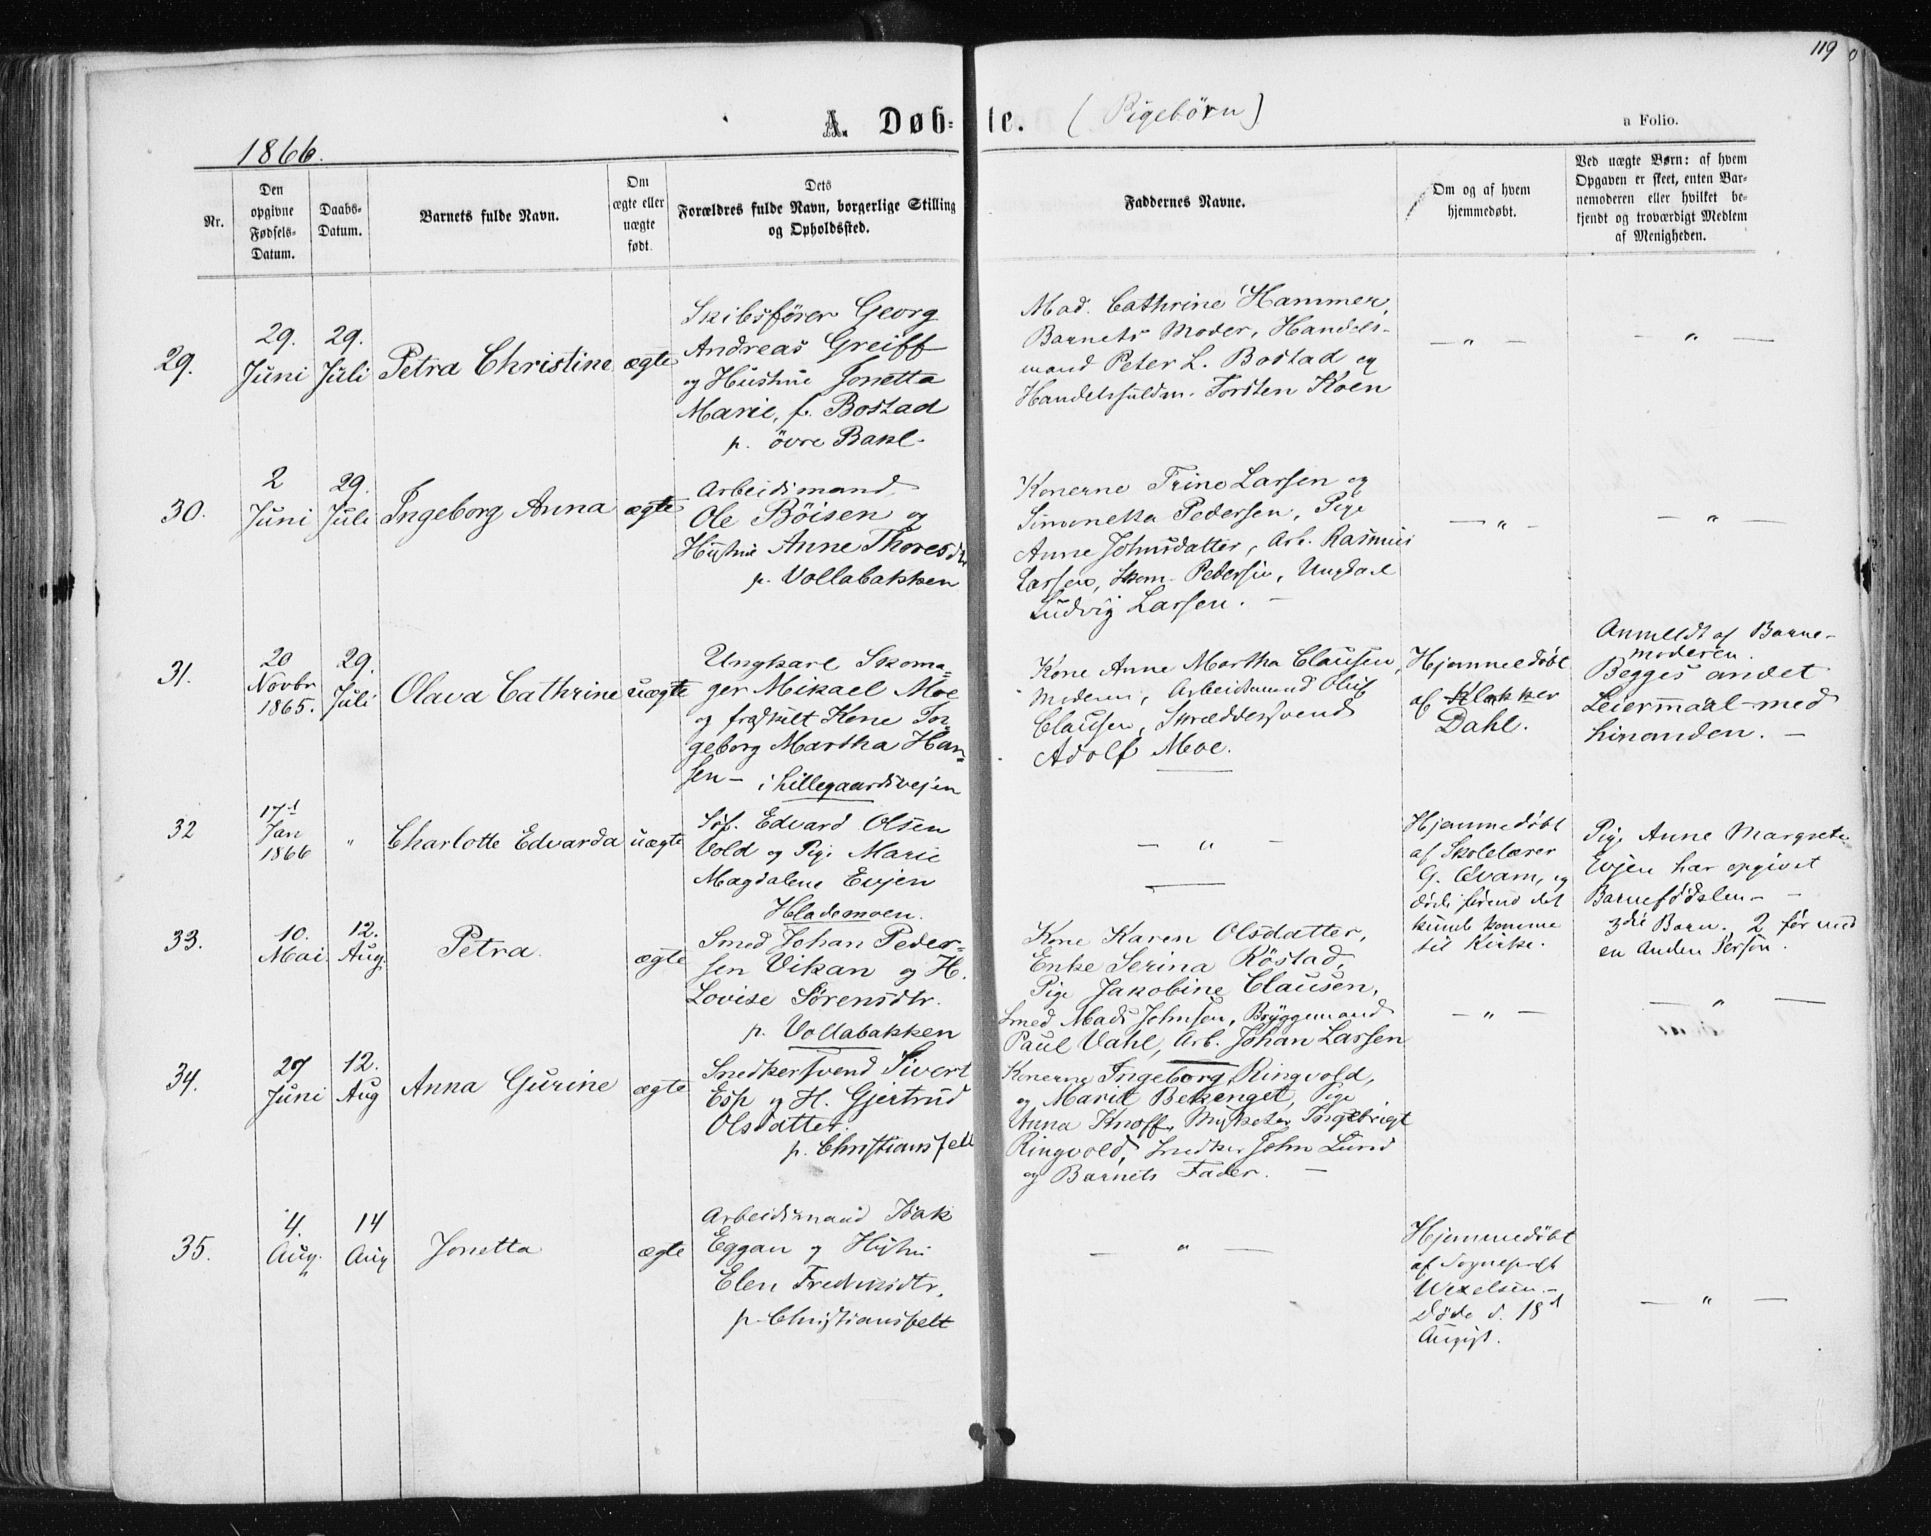 119
A. Døbte. (Pigebörn)
a Folio.
1866.
Nr.
Den
opgivne
Fødsels-
Datum.
Daabs-
Datum.
Barnets fulde Navn.
Om
ægte eller
uægte
født.
Dets
Forældres fulde Navn, borgerlige Stilling
og Opholdssted.
Faddernes Navne.
Om og af hvem
hjemmedøbt.
Ved uægte Børn: af hvem
Opgaven er skeet, enten Bar-
nemoderen eller hvilket be-
kjendt og troværdigt Medlem
af Menigheden.
29.
29.
Juni
29.
Juli
Petra Christine
ægte
Skibsförer Georg
Andreas Greiff
og Hustrue Jonetta
Marie, f. Bostad
p. övre Bakl.
Mad. Cathrine Hammer,
Barnets Moder, Handels-
mand Peter L. Bostad og
Handelsfuldm. Torsten Koen
— " —
— " —
30.
2
Juni
29.
Juli
Ingeborg Anna
ægte
Arbeidsmand
Ole Böisen og
Hustrue Anne Thoresdtr
p. Vollabakken
Konerne Trine Larsen og
Simonetta Pedersen, Pige
Anne Johnsdatter, Arb. Rasmus
Larsen, Skom. Pedersen, Ungkarl
Ludvig Larsen. —
— " —
— " —
31.
20
Novbr
1865.
29.
Juli
Olava Cathrine
uægte
Ungkarl Skoma-
ger Mikael Moe
og fraskilt Kone In
geborg Martha Han-
sen — i Lillegaardsvejen
Kone Anne Martha Clausen,
Moderen, Arbeidsmand Oluf
Clausen, Skræddersvend
Adolf Moe.
Hjemmedöbt
af Klokker
Dahl.
Anmeldt af Barne-
moderen.
Begges andet
Leiermaal med
hinanden. —
32
17d
Jan
1866
"
Charlotte Edvarda
uægte
Söf. Edvard Olsen
Vold og Pige Marie
Magdalene Evjen
Hlademoen.
— " —
Hjemmedöbt
af Skolelærer
G. Qvam, og
döde förend det
kunde komme
til Kirke.
Pige Anne Margrete
Evjen har opgivet
Barnefödslen —
3die Barn. 2 för med
en Anden Person.
33.
10.
Mai
12.
Aug.
Petra
ægte
Smed Johan Peder-
sen Vikan og H.
Lovise Sörensdtr.
p. Vollabakken
Kone Karen Olsdatter,
Enke Serina Röstad,
Pige Jakobine Clausen,
Smed Mads Johnsen, Bryggemand
Paul Vahl, Arb. Johan Lassen
— " —
— " —
34.
27
Juni
12.
Aug
Anna Gurine
ægte
Snedkersvend Sivert
Esp og H. Gjertrud
Olsdatter.
p. Christiansfelt
Konerne Ingeborg Ringvold,
og Marit Bekenget, Pige
Anna Knoff, Ingebrigt
Ringvold, Snedker John Lund
og Barnets Fader. —
35.
4.
Aug.
14
Aug
Jonetta
ægte
Arbeidsmand Isak
Eggan og Hustrue
Elen Frederiksdtr.
p. Christiansfelt
— " —
Hjemmedöbt
af Sogneprest
Wexelsen. —
Döde d. 18d
August.
— " —